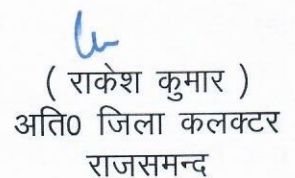 ( राकेश कुमार )
अति0 जिला कलक्टर
राजसमन्द